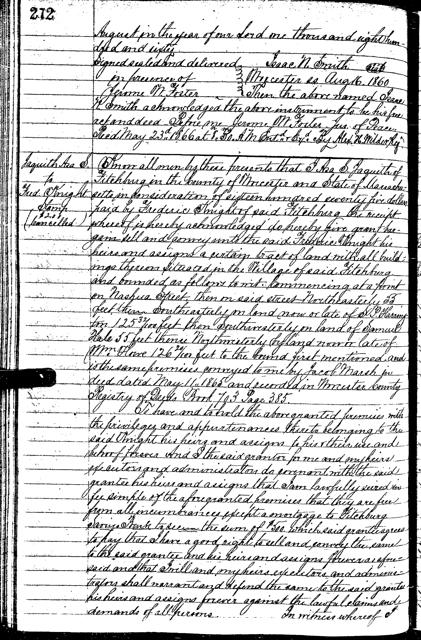 272
August in the year of our Lord one thousand eight hun
dred and sixty
Signed sealed and delivered Isaac N. Smith
in presence of Worcester ss Aug 16. 1860
Jerome W. Foster Then the above named Isaac
N. Smith acknowledged the above instrument to be his free
act and deed Before me Jerome W. Foster Jus of Peace
Rec'd May 23d 1866 at 8 A.M. Ent'd & Ex'd By Alex H Wilder Reg
Jaquith Asa S. Know all men by these presents that I Asa S. Jaquith of
to Fitchburg in the County of Worcester and State of Massachu
Fred O'Knight setts in consideration of sixteen hundred seventy five dollars
Stamp paid by Frederic Knight of said Fitchburg the receipt
whereof is hereby acknowledged do hereby give grant bar
(cancelled) gain sell and convey unto the said Frederic Knight his
heirs and assigns a certain tract of land with all build
ings thereon situated in the Village of said Fitchburg
and bounded as follows to wit: commencing at a point
on Nashua Street, then on said street Northeasterly 53
feet then Southeasterly on land now or late of
ton 125 feet then Southwesterly on land of Samuel
Hale 55 feet thence Northwesterly by land now or late of
Wm Lowe 126 feet to the bound first mentioned and
is the same premises conveyed to me by Jacob Marsh in
deed dated May 11, 1865 and recorded in Worcester County
Registry of Deeds Book 703 Page 385.
To have and to hold the above granted premises with
the privileges and appurtenances thereto belonging to the
said Knight his heirs and assigns to his & their use and
behoof forever And I the said grantor for me and my heirs
executors and administrators do covenant with the said
grantee his heirs and assigns that I am lawfully seized in
fee simple of the aforegranted premises that they are free
from all incumbrances except a mortgage to Fitchburg
Savings Bank to secure the sum of $700. which said grantee agrees
to pay that I have a good right to sell and convey the same
to the said grantee and his heirs and assigns forever as afore
said and that I will and my heirs executors and adminis
trators shall warrant and defend the same to the said grantee
his heirs and assigns forever against the lawful claims and
demands of all persons In witness whereof I